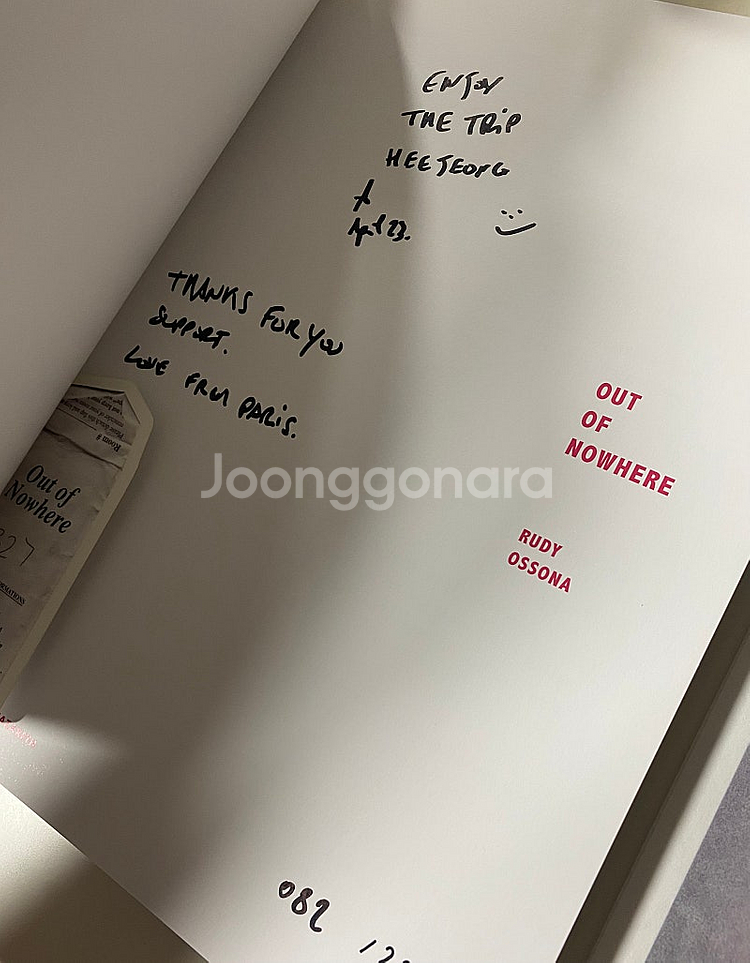 ENJOY
THE TRIP
HEEJEONG
April 23.
THANKS FOR YOU
SUPPORT.
LOVE FROM PARIS.
OUT
OF
NOWHERE
RUDY
OSSONA
Room #
Out of
Nowhere
Joonggonara
082